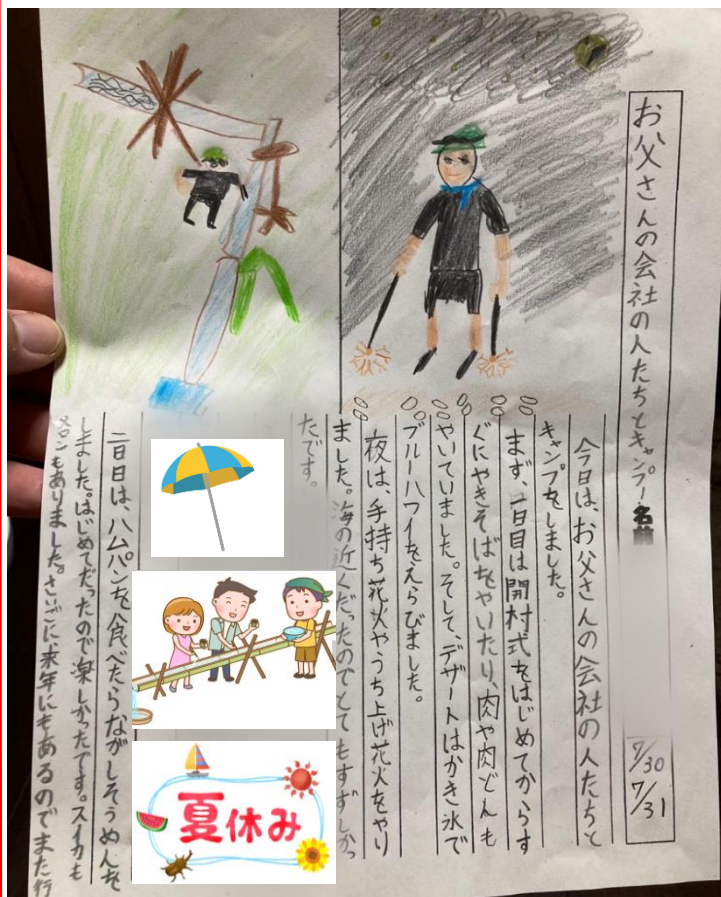 お父さんの会社の人たちとキャンプ!
名前
7/30
7/31
今日は、お父さんの会社の人たちと
キャンプをしました。
まず、一日目は開村式をはじめてからす
ぐにやきそばをやいたり、肉や肉どんも
やいていました。そして、デザートはかき氷で
ブルーハワイをえらびました。
夜は、手持ち花火やうち上げ花火をやり
ました。海の近くだったのでとてもすずしかっ
たです。
二日目は、ハムパンを食べたらながしそうめんを
しました。はじめてだったので楽しかったです。スイカも
メロンもありました。さいごに来年にもあるのでまた行
夏休み